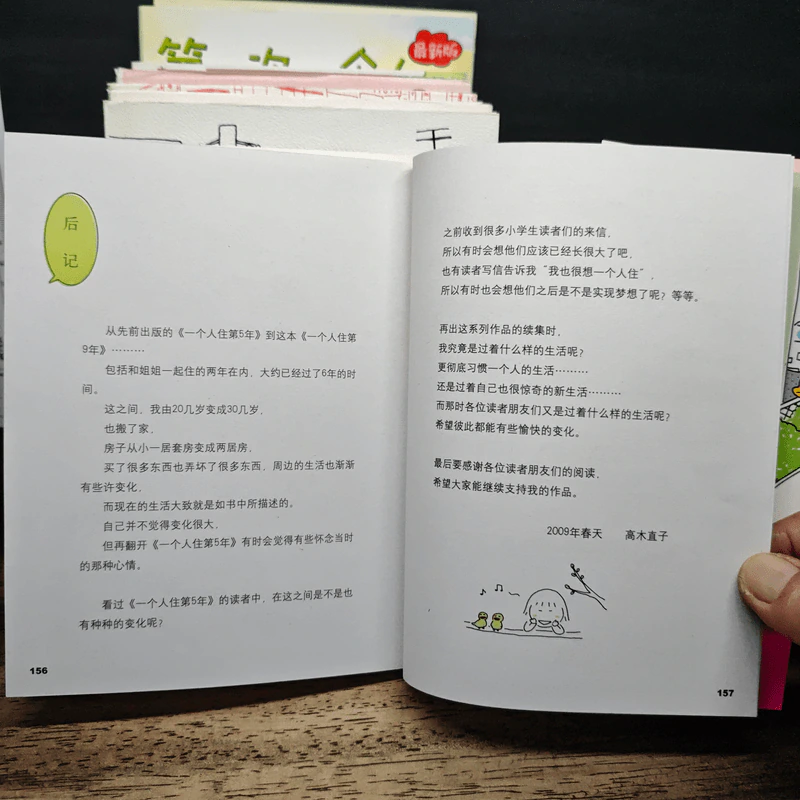 最新版
后
记
从先前出版的《一个人住第5年》到这本《一个人住第
9年》………
包括和姐姐一起住的两年在内，大约已经过了6年的时
间。
这之间，我由20几岁变成30几岁，
也搬了家，
房子从小一居套房变成两居房，
买了很多东西也弄坏了很多东西，周边的生活也渐渐
有些许变化，
而现在的生活大致就是如书中所描述的。
自己并不觉得变化很大，
但再翻开《一个人住第5年》有时会觉得有些怀念当时
的那种心情。
看过《一个人住第5年》的读者中，在这之间是不是也
有种种的变化呢？
156
之前收到很多小学生读者们的来信，
所以有时会想他们应该已经长很大了吧，
也有读者写信告诉我“我也很想一个人住”，
所以有时也会想他们之后是不是实现梦想了呢？等等。
再出这系列作品的续集时，
我究竟是过着什么样的生活呢？
更彻底习惯一个人的生活………
还是过着自己也很惊奇的新生活………
而那时各位读者朋友们又是过着什么样的生活呢？
希望彼此都能有些愉快的变化。
最后要感谢各位读者朋友们的阅读，
希望大家能继续支持我的作品。
2009年春天 高木直子
157